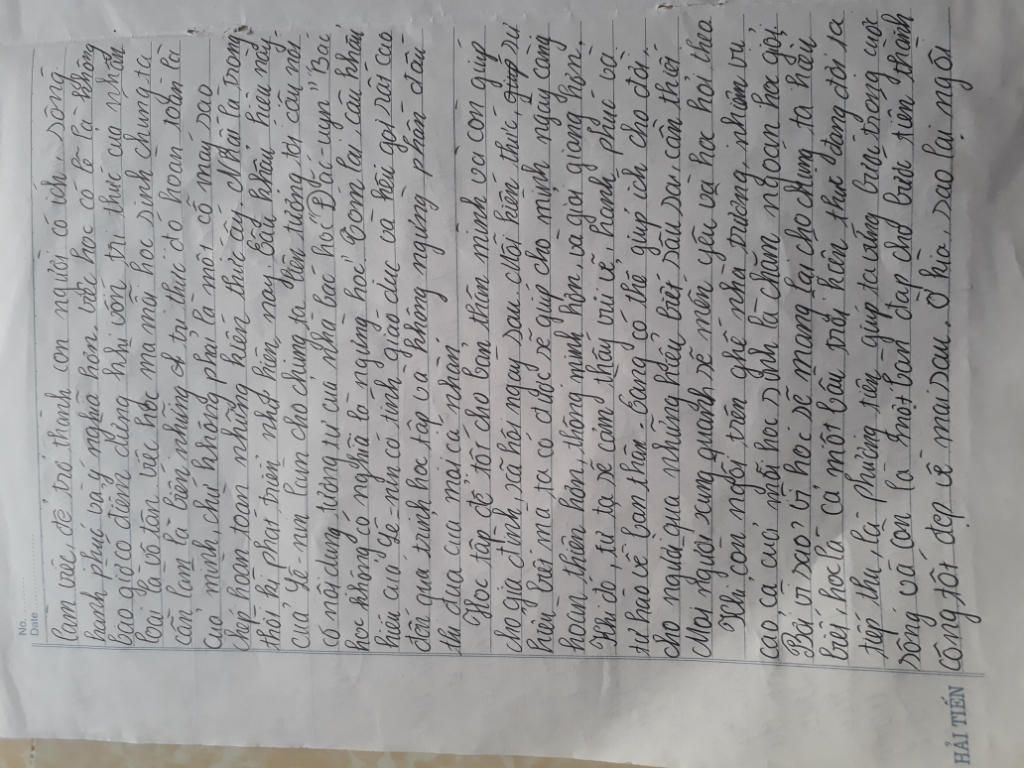 No.
Date
làm việc để trở thành con người có ích, sống
hạnh phúc và ý nghĩa hơn. Việc học có lẽ lẽ không
bao giờ có điểm dừng khi vốn tri thức của nhân
loại là vô tận. Việc học mà mỗi học sinh chúng ta
cần làm là biến những tri thức đó hoàn toàn là
của mình, chứ không phải là một cỗ máy sao
chép hoàn toàn những kiến thức ấy. Nhất là trong
thời kì phát triển như hiện nay, bất khẩu hiệu này
của Lê-nin làm cho chúng ta liên tưởng tới câu nói
có nội dung tương tự của nhà bác học "Đác-uyn" "Bác
học không có nghĩa là ngừng học". Tóm lại, câu khẩu
hiệu của Lê-nin có tính giáo dục và kêu gọi rất cao
đến quá trình học tập và không ngừng phấn đấu
thi đua của mọi cá nhân.
Học tập để tốt cho bản thân mình và còn giúp
cho gia đình, xã hội ngày sau. Mỗi kiến thức, sự
hiểu biết mà ta có được sẽ giúp cho mình ngày càng
hoàn thiện hơn, thông minh hơn và giỏi giang hơn.
Khi đó, tự ta sẽ cảm thấy vui vẻ, hạnh phúc và
tự hào về bản thân. Cũng có thể giúp ích cho đời,
cho người qua những hiểu biết sâu sa, cần thiết
Mọi người xung quanh sẽ mến yêu và học hỏi theo
Khi còn ngồi trên ghế nhà trường nhiệm vụ
cao cả của mỗi học sinh là chăm ngoan học giỏi.
Bởi vì sao? vì học sẽ mang lại cho chúng ta hiểu
biết học là cả một bầu trời kiến thức đang đợi ta
tiếp thu, là phương tiện giúp ta vững bước trong cuộc
sống và còn là một bàn đạp cho bước tiến thành
công tốt đẹp về mai sau. Ở kìa, sao lại ngồi
HẢI TIẾN